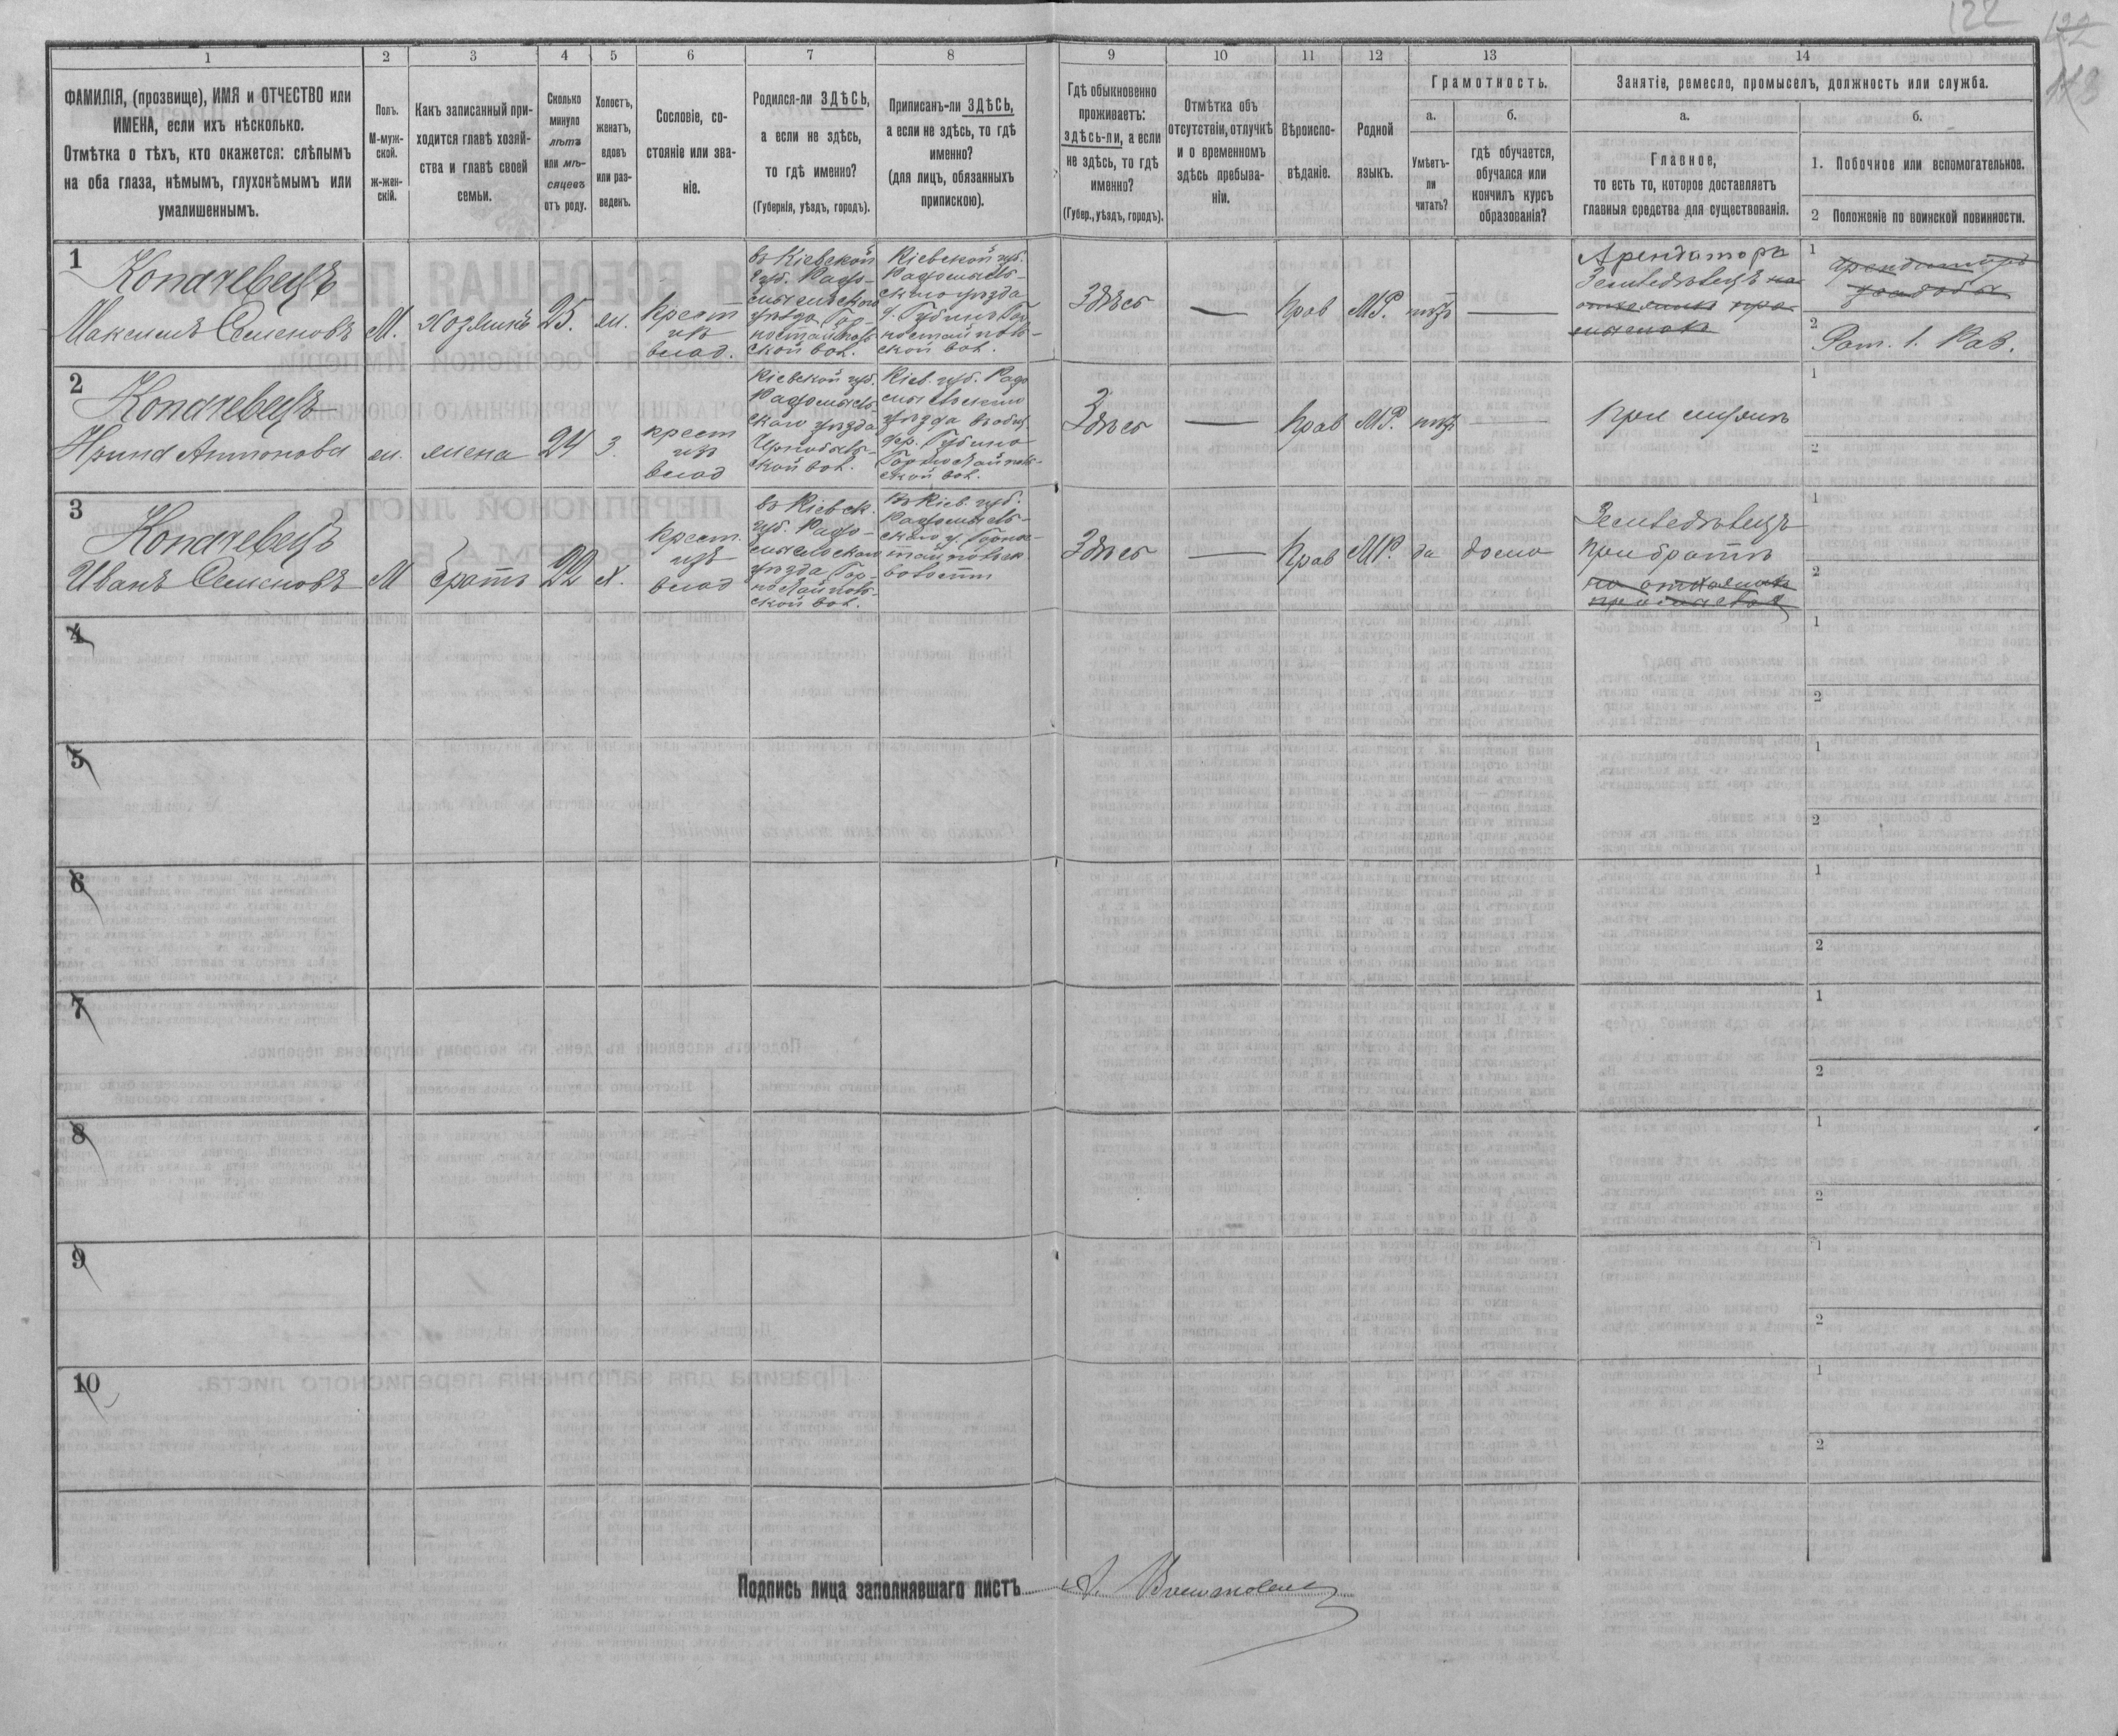 122
122
113
1
2
3
4
5
6
7
8
9
10
11
12
13
14
ФАМИЛІЯ, (прозвище), ИМЯ и ОТЧЕСТВО или
ИМЕНА, если ихъ нѣсколько.
Отмѣтка о тѣхъ, кто окажется: слѣпымъ
на оба глаза, нѣмымъ, глухонѣмымъ или
умалишеннымъ.
Полъ.
М-муж-
ской.
ж-жен-
скій.
Какъ записанный при-
ходится главѣ хозяй-
ства и главѣ своей
семьи.
Сколько
минуло
лѣтъ
или мѣ-
сяцевъ
отъ роду.
Холостъ,
женатъ,
вдовъ
или раз-
веденъ.
Сословіе, со-
стояніе или зва-
ніе.
Родился-ли ЗДѢСЬ,
а если не здѣсь,
то гдѣ именно?
(Губернія, уѣздъ, городъ).
Приписанъ-ли ЗДѢСЬ,
а если не здѣсь, то гдѣ
именно?
(для лицъ, обязанныхъ
припискою).
Гдѣ обыкновенно
проживаетъ:
здѣсь-ли, а если
не здѣсь, то гдѣ
именно?
(Губер., уѣздъ, городъ).
Отмѣтка объ
отсутствіи, отлучкѣ
и о временномъ
здѣсь пребыва-
ніи.
Вѣроиспо-
вѣданіе.
Родной
языкъ.
Грамотность.
а.
Умѣетъ-
ли
читать?
б.
гдѣ обучается,
обучался или
кончилъ курсъ
образованія?
Занятіе, ремесло, промыселъ, должность или служба.
а.
Главное,
то есть то, которое доставляетъ
главныя средства для существованія.
б.
1. Побочное или вспомогательное.
2 Положеніе по воинской повинности.
1
Копачевецъ
Максимъ Семеновъ
М.
хозяинъ
25.
ж.
крест
из
влад.
въ Кіевской
губ. Радо-
мысльскаго
уѣзда Гор-
ностайполь
ской вол.
Кіевской губ.
Радомысль-
скаго уѣзда
Губинъ Гор
ностайполь-
ской вол.
Здѣсь
—
Прав
МР.
нѣтъ
—
Арендаторъ
Земледѣлецъ на
1
арендаторъ
усадьбы
2
Рат. 1. Раз.
2
Копачевецъ
Ирина Антонова
ж.
жена
24
З.
крест
изъ
влад
Кіевской губ.
Радомысль-
скаго уѣзда
Чернобыль-
ской вол.
Кіев. губ. Радо
мысльскаго
уѣзда
дер. Губина
Горностайполь-
ской вол.
Здѣсь
—
Прав
МР.
нѣтъ
—
при мужѣ
1
2
3
Копачевецъ
Иванъ Семеновъ
М
братъ
22
х.
крест.
изъ
влад
въ Кіевск.
губ. Радо-
мысльскаго
уѣзда Гор-
ностайполь-
ской вол.
Въ Кіев. губ.
Радомысль-
скаго у. Горнос-
тайпольск
волости
Здѣсь
—
Прав
МР.
да
дома
Земледѣлецъ
при братѣ
1
2
4
1
2
5
1
2
6
1
2
7
1
2
8
1
2
9
1
2
10
1
2
Подпись лица заполнявшаго листъ